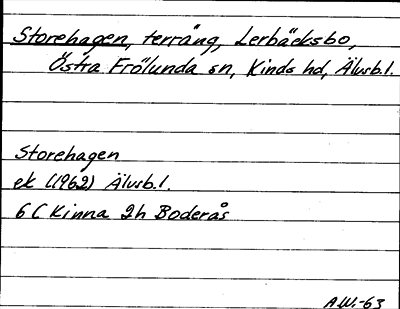 Storehagen, terräng, Lerbäcksbo,
Östra Frölunda sn, Kinds hd, Älvsb.l.
Storehagen
ek (1962) Älvsb.l.
6 C Kinna 2h Boderås
A.W.-63